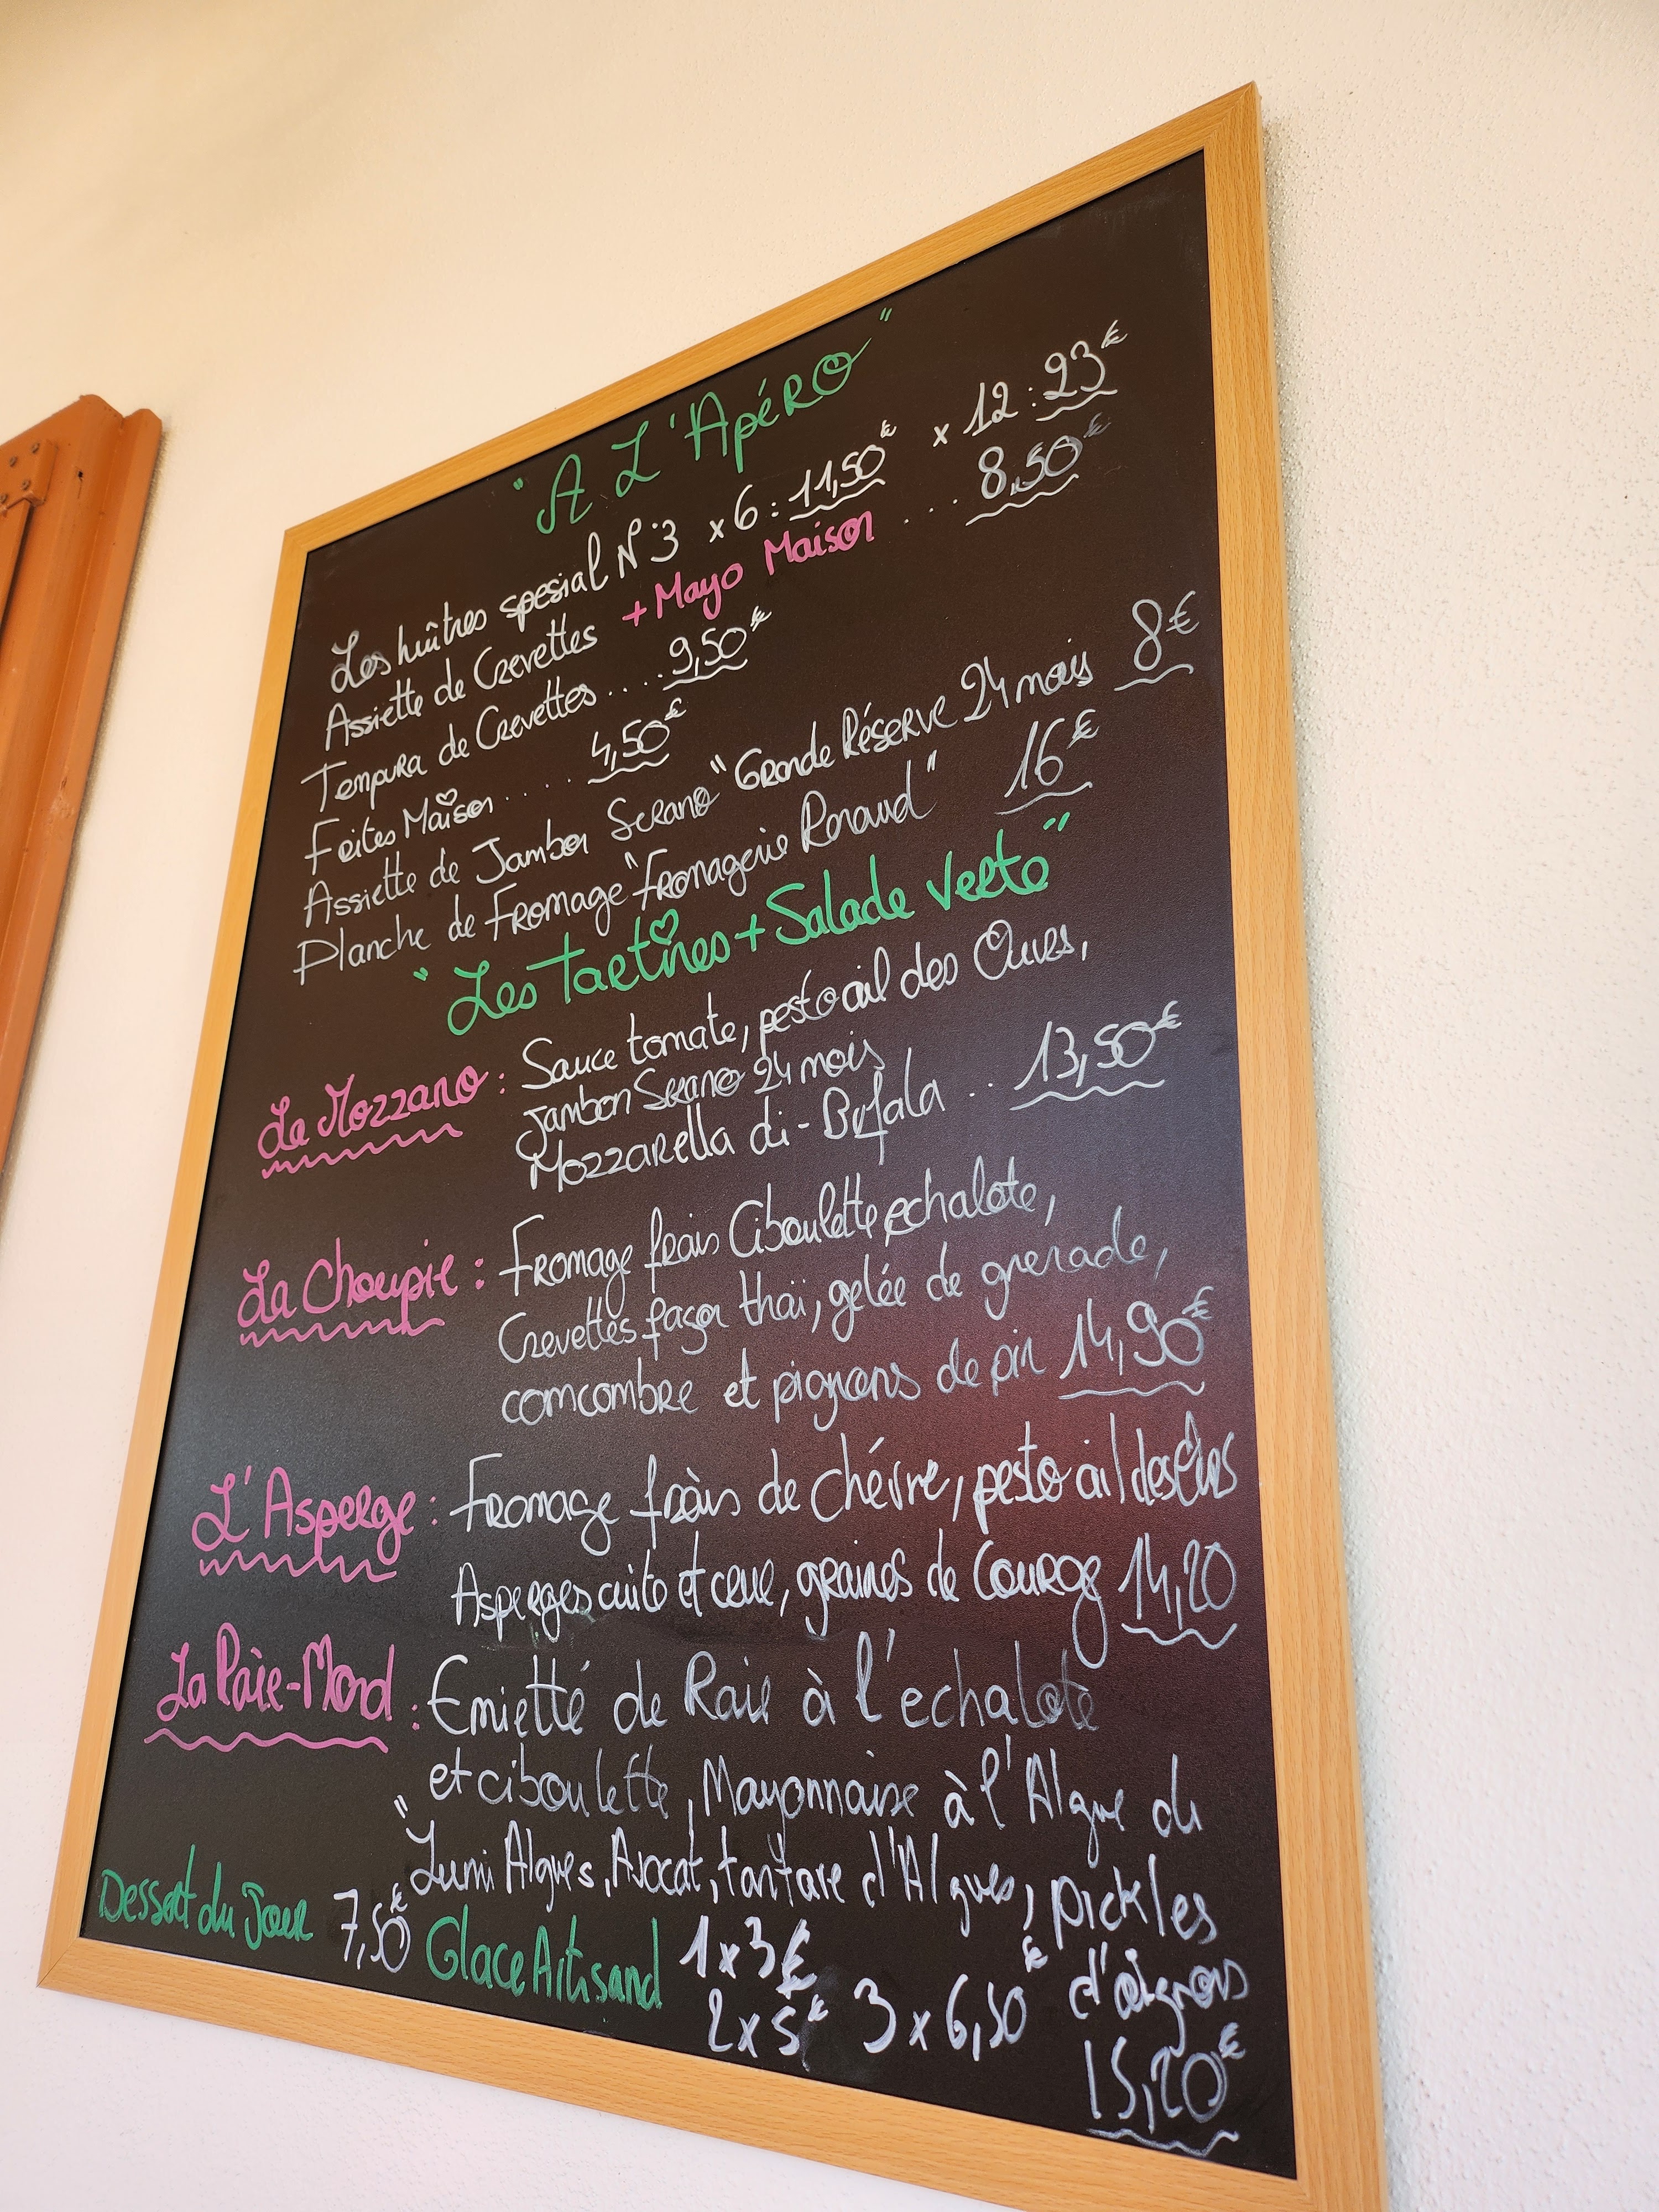 "A L'Apéro"
Les huîtres spesial N°3 x 6 : 11,50€ x 12 : 23€
Assiette de Crevettes + Mayo Maison ... 8,50€
Tempura de Crevettes .... 9,50€
Frites Maison ..... 4,50€
Assiette de Jambon Serano "Grande Réserve 24 mois 8€
Planche de Fromage "Fromagerie Renaud" 16€
"Les Tartines + Salade Verte"
La Mozzano : Sauce tomate, pesto ail des Ours,
Jambon Serano 24 mois
Mozzarella di-Bufala . 13,50€
La Choupie : Fromage frais Ciboulette echalote,
Crevettes façon thaï, gelée de grenade,
comcombre et pignons de pin 14,90€
L'Asperge : Fromage frais de chévre, pesto ail des Ours
Asperges cuite et crue, graines de Courge 14,20
La Raie-Mond : Emietté de Raie à l'echalote
et ciboulette, Mayonnaise à l'Algue de
"Lumi Algues, Avocat, tartare d'Algues, pickles
d'oignons
15,20€
Dessert du Jour 7,50€ Glace Artisand 1x3€
2x5€ 3x6,50€